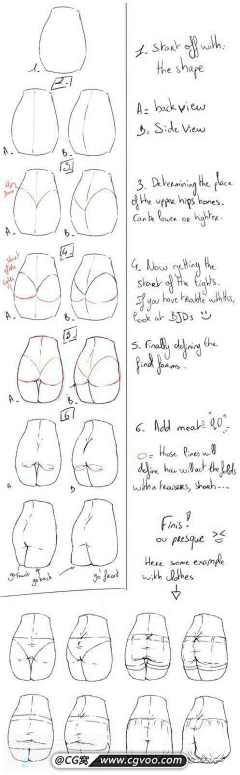 1. Start off with:
the shape
1.
2.
A = back view
B = Side View
A.
B.
3.
3. Determining the place
of the upper hips bones.
Can be lower or highter.
A.
B.
4.
start
of the
4. Now getting the
start of the tights.
If you have trouble with this,
look at BJDs
A.
B.
5.
5. Finally defining the
final forms.
A.
B.
6
6. Add meat
= those lines will
define how will act the folds
within trousers, shorts...
A
B
Finis!
ou presque ><
go front
go back
go front
Here some example
with clothes
@CG窝 www.cgvoo.com